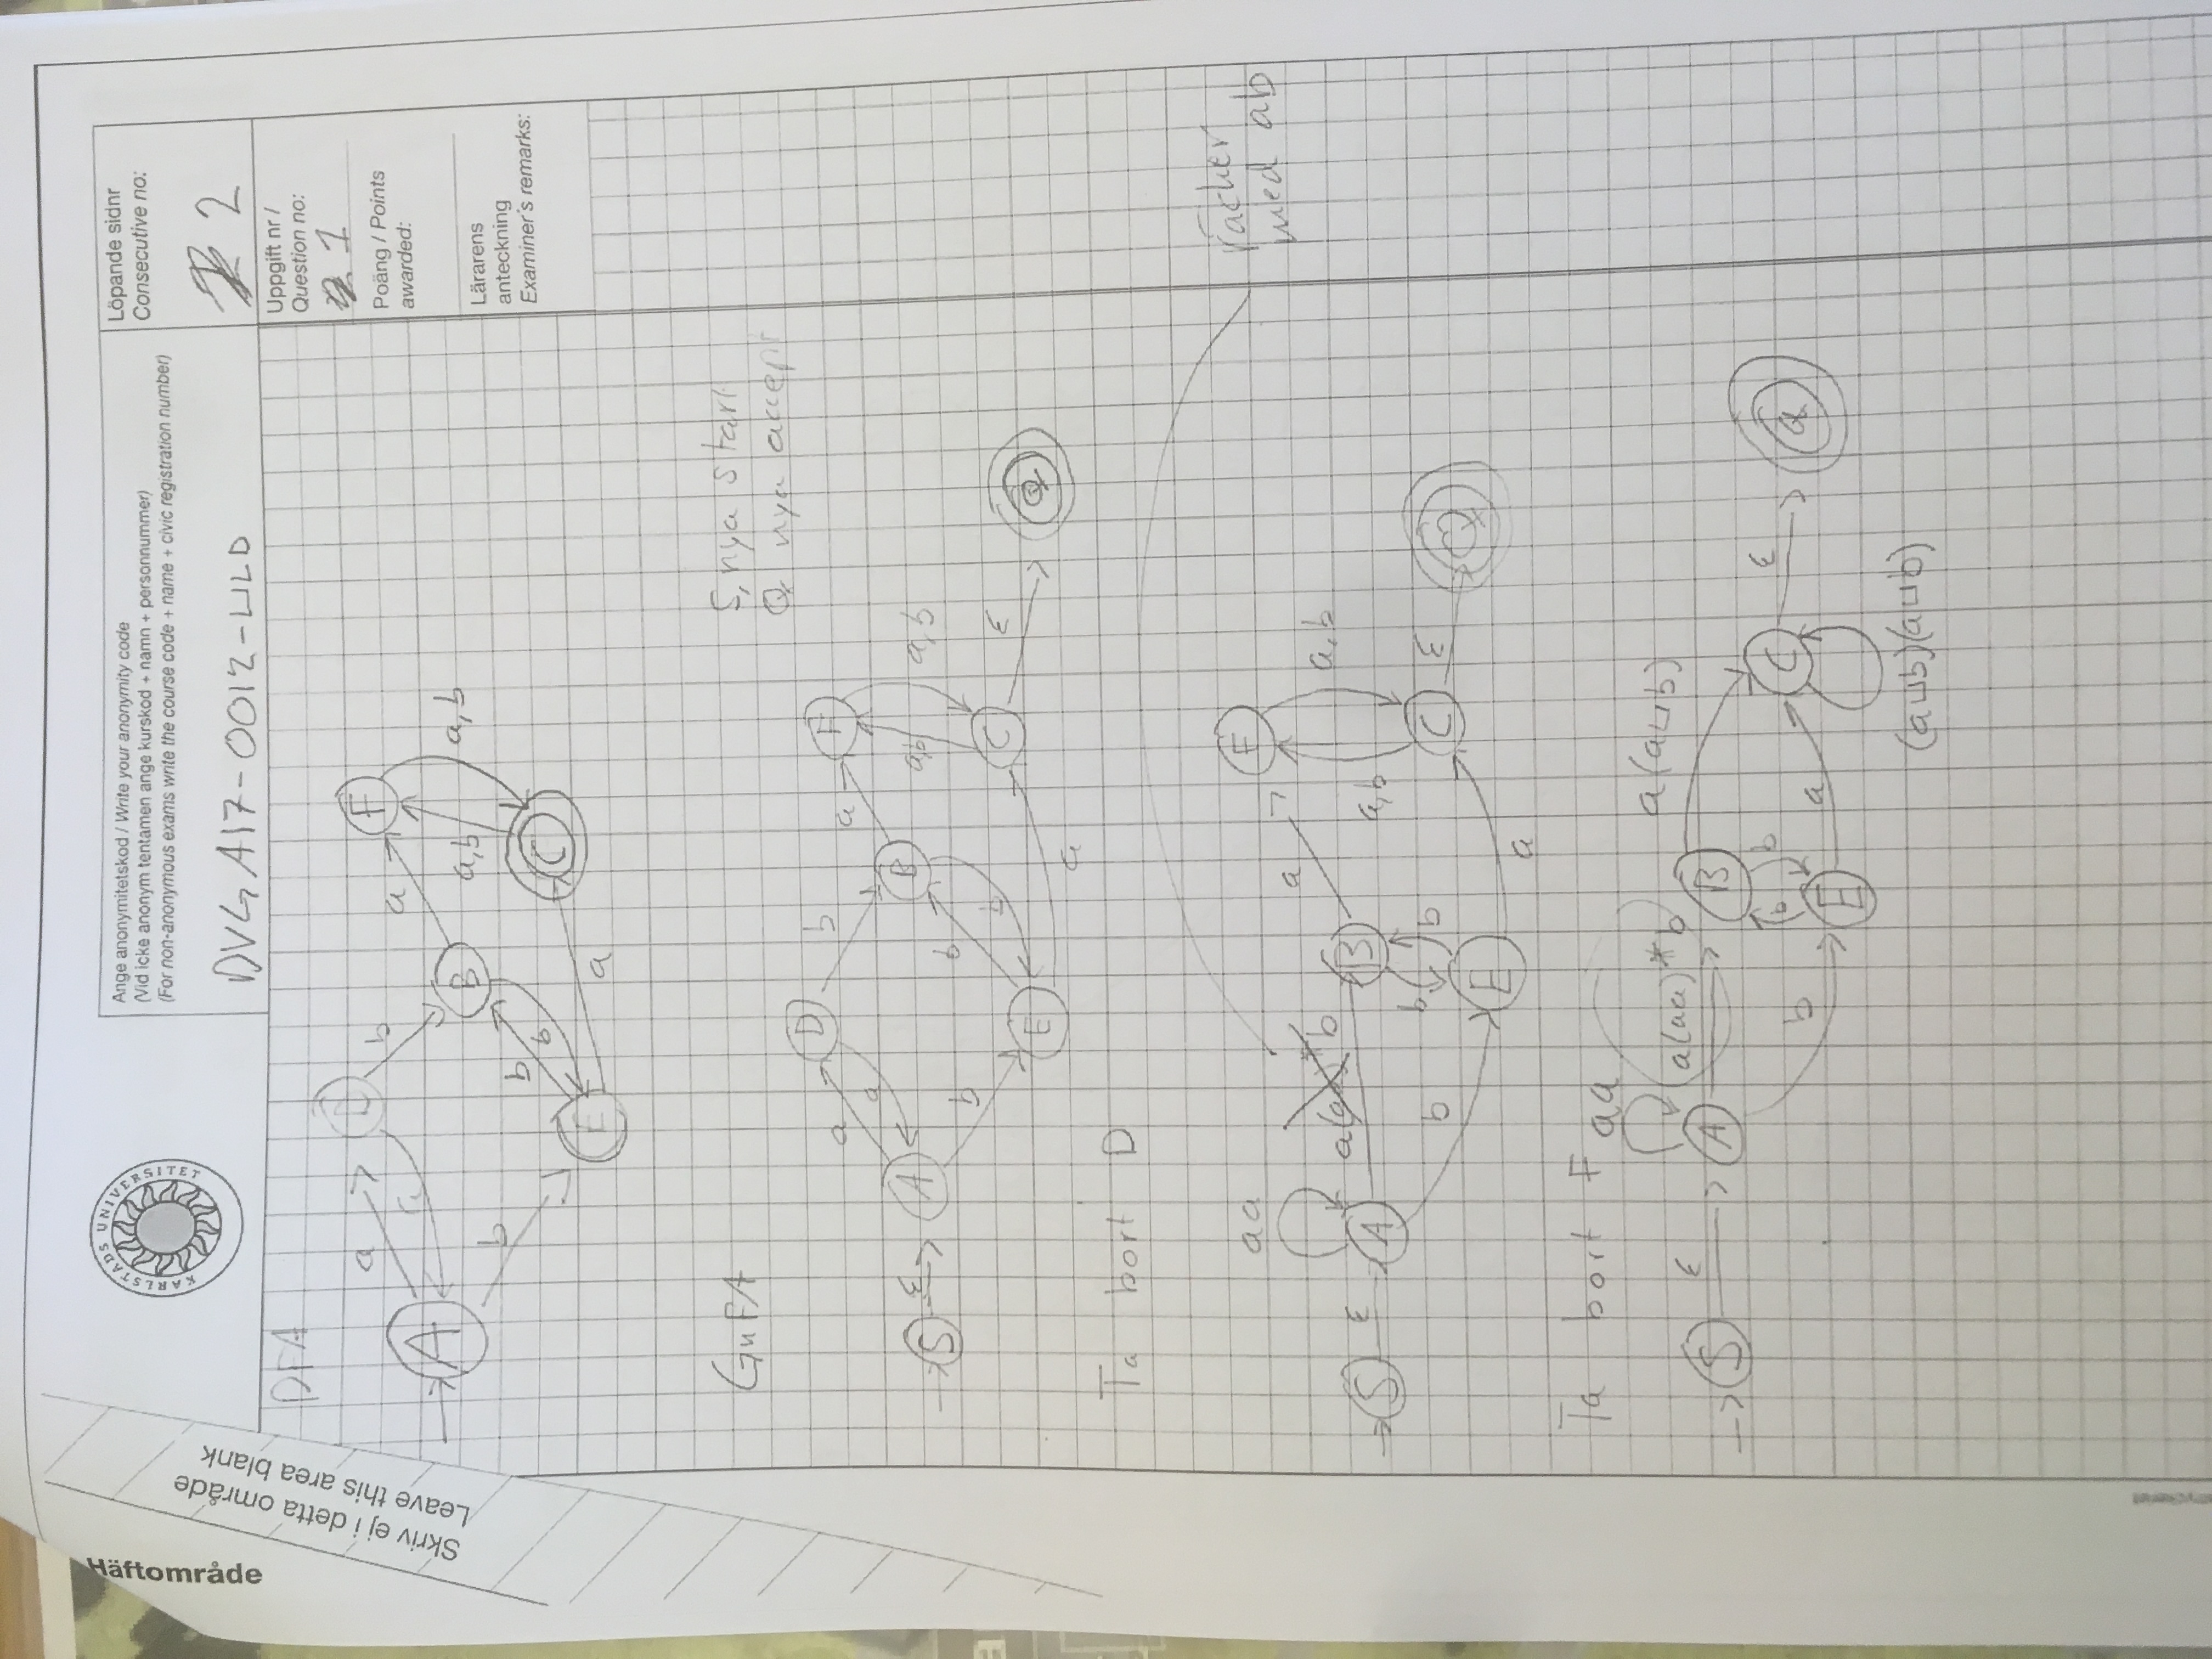 Häftområde
Skriv ej i detta område
Leave this area blank
KARLSTADS UNIVERSITET
Ange anonymitetskod / Write your anonymity code
(Vid icke anonym tentamen ange kurskod + namn + personnummer)
(For non-anonymous exams write the course code + name + civic registration number)
DVGA17-0012-
Löpande sidnr
Consecutive no:
2
Uppgift nr /
Question no:
1
Poäng / Points
awarded:
Lärarens
anteckning
Examiner's remarks:
DFA
a
a
b
a
F
A
B
a,b
a,b
b
b
b
C
E
a
GnFA
S, nya start
Q nya accept
D
b
a
F
a
a
S
ε
A
B
a,b
a,b
b
b
b
C
ε
E
Q
a
Ta bort D
räcker
med ab
aa
F
a
b
a,b
S
ε
A
B
a,b
b
b
b
C
ε
Q
E
a
Ta bort F
aa
a(a⊔b)
a(aa)*b
S
ε
A
B
b
b
b
C
ε
Q
E
a
(a⊔b)(a⊔b)